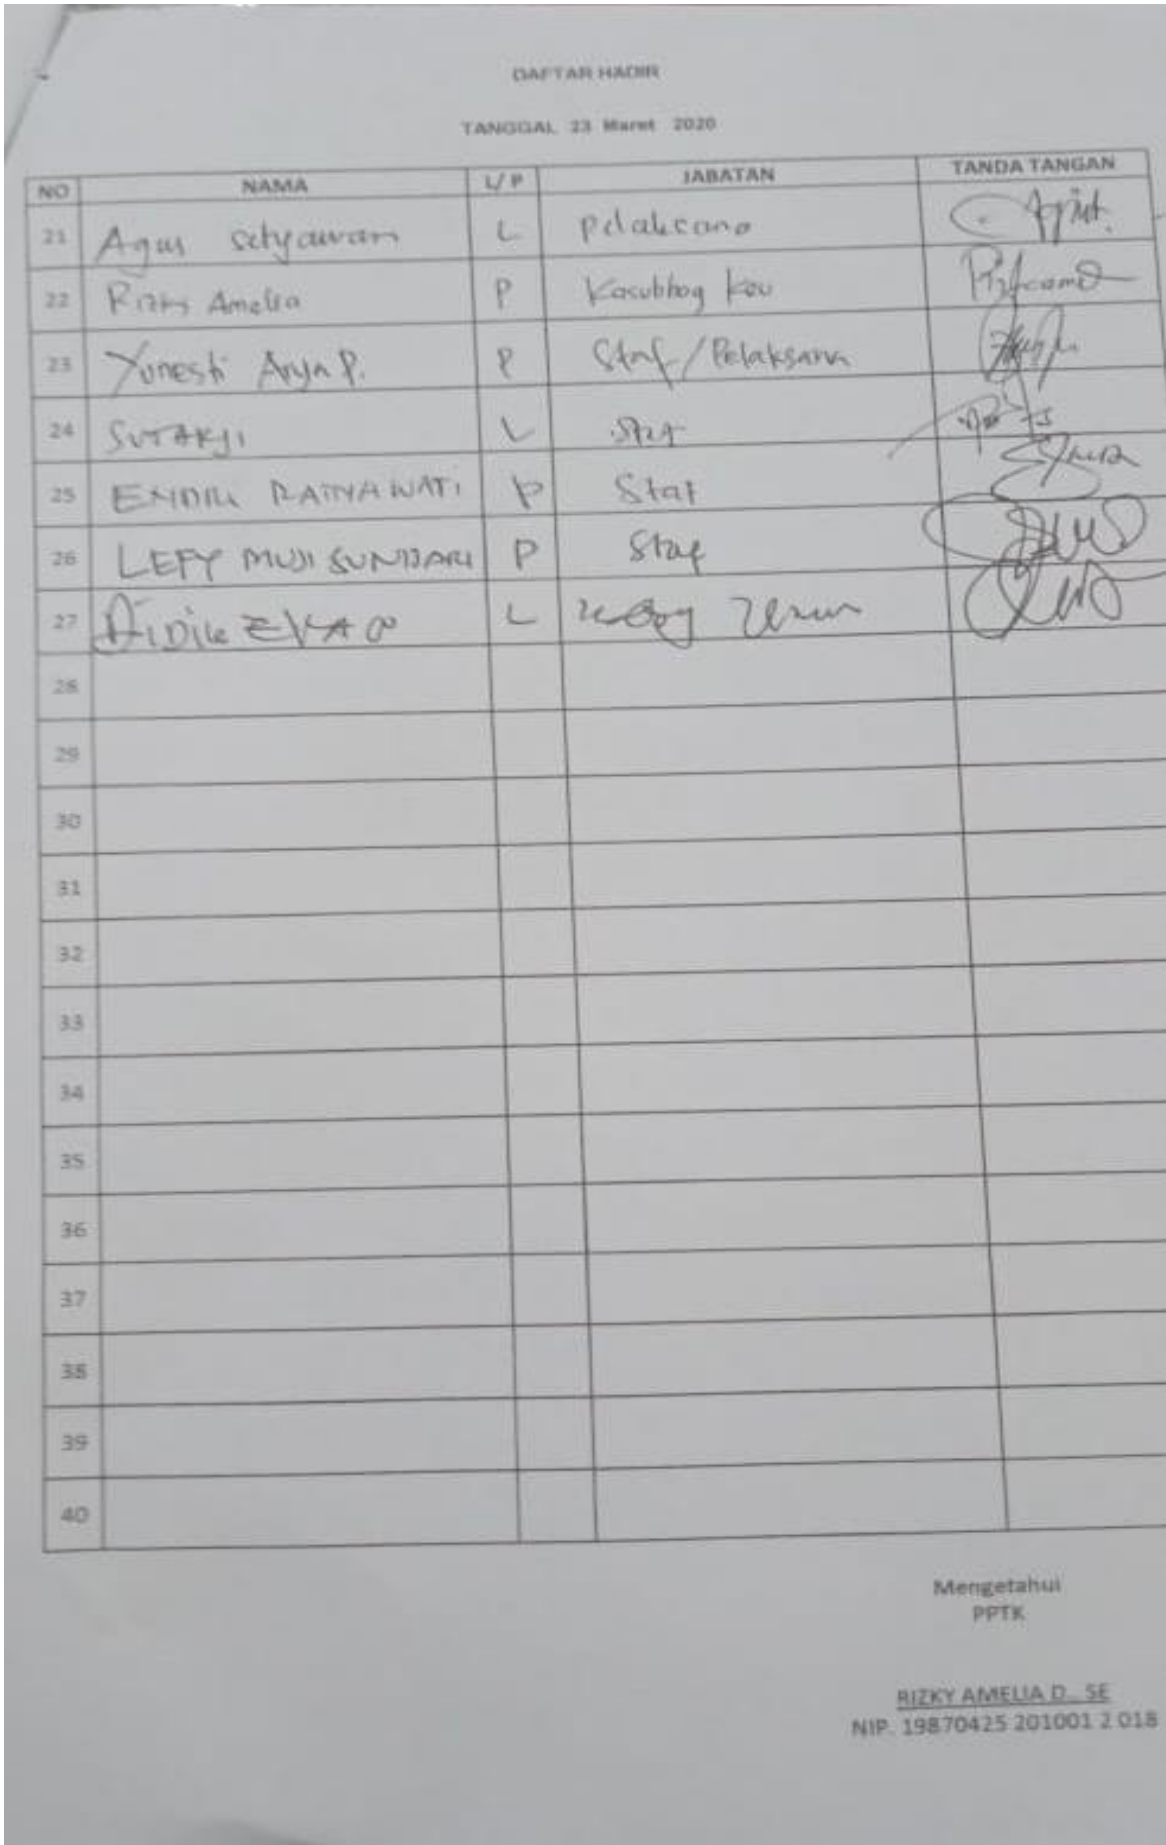 DAFTAR HADIR
TANGGAL 23 Maret 2020
NO NAMA L/P JABATAN TANDA TANGAN
21 Agus Setyawan L Pelaksana
22 Rizky Amelia P Kasubbag Keu
23 Yunesti Arya P. P Staf/Pelaksana
24 SUTAKJI L Staf
25 ENDIK RATNAWATI P Staf
26 LEFY MUJI SUNDARI P Staf
27 DIDIK EKA L
28
29
30
31
32
33
34
35
36
37
38
39
40
Mengetahui
PPTK
RIZKY AMELIA D., SE
NIP. 19870425 201001 2 018